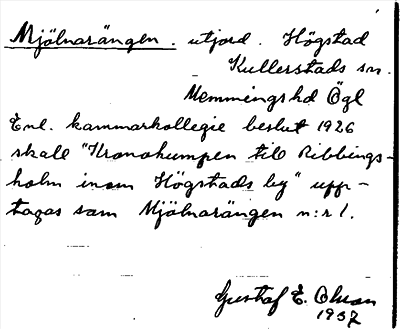 Mjölnarängen. utjord. Högstad
Kullerstads sn.
Memmings hd Ögl
Enl. kammarkollegie beslut 1926
skall "Kronohumpen till Ribbings-
holm inom Högstads by" upp-
tagas som Mjölnarängen n:r 1.
Gustaf E. Olsson
1937